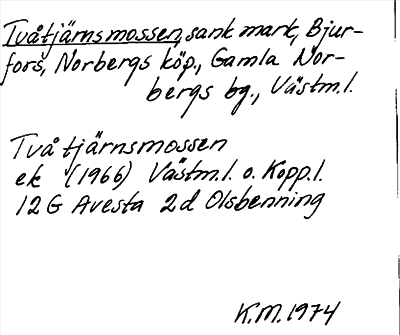 Tvåtjärnsmossen, sank mark, Bjur-
fors, Norbergs köp., Gamla Nor-
bergs bg., Västm.l.
Tvåtjärnsmossen
ek (1966) Västm.l. o. Kopp.l.
12G Avesta 2d Olsbenning
K.M. 1974